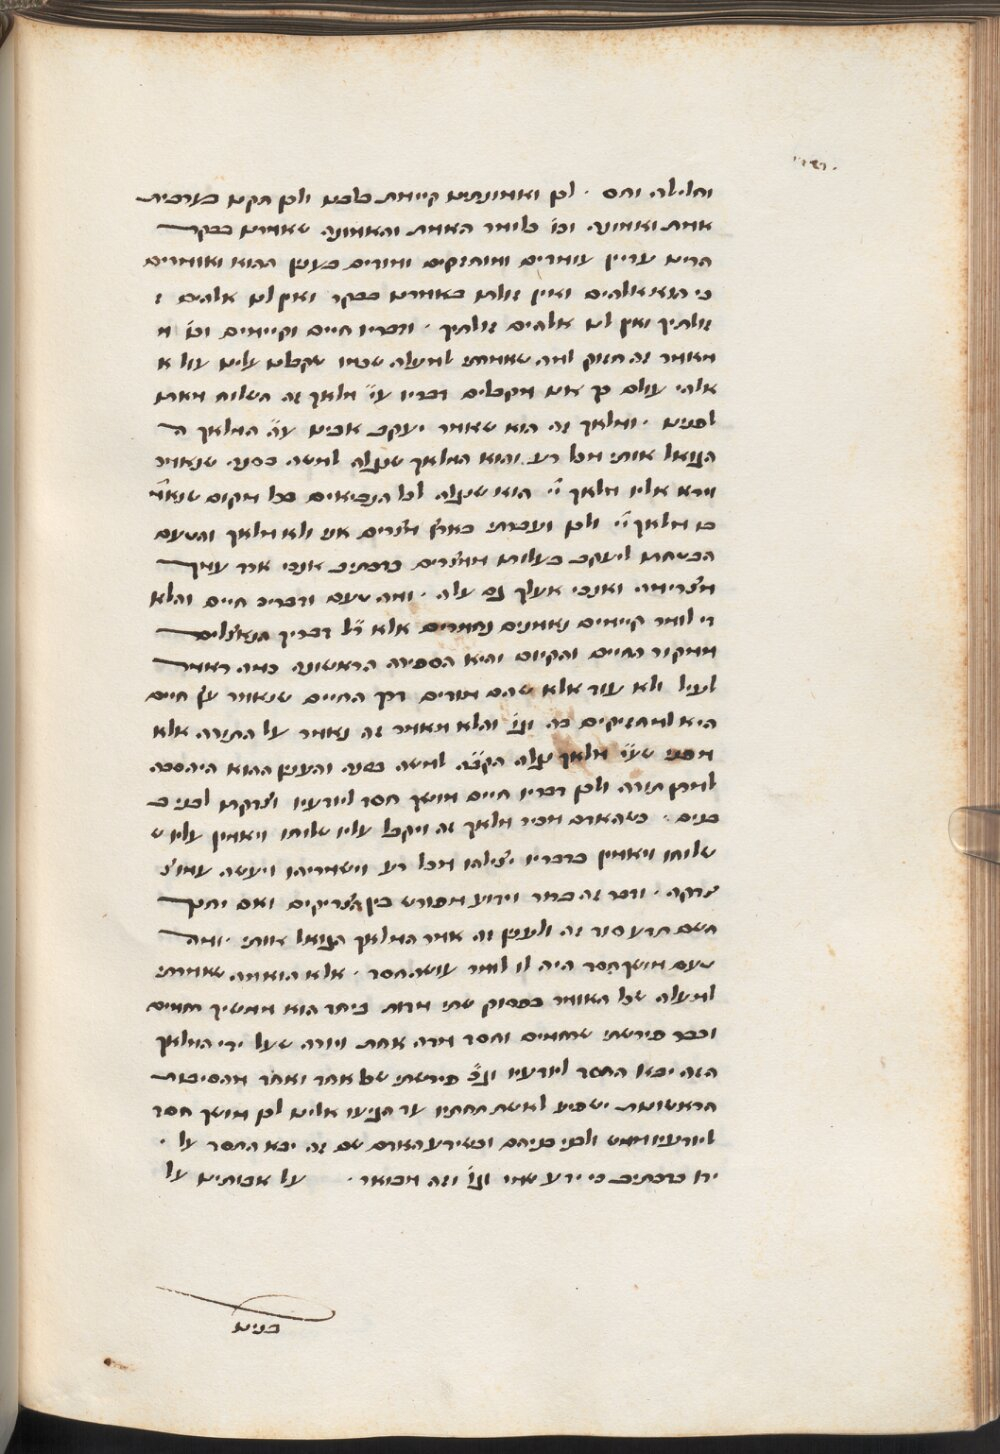 וחלילה וחס · לכן ואמונתינו קיימת בלבנו ולכן תקנו בערבית
אמת ואמונה וכו׳ כלומר האמת והאמונה שאמרנו בבקר
הרינו עדיין עומדים ומוחזקים ומודים בענין ההוא ואומרים
כי הוא אלהינו ואין זולתו כאומרנו בבקר ואין לנו אלהים ז
זולתיך ואין לנו אלהים זולתיך · ודבריו חיים וקיימים וכו׳ מ
מאמר זה חוזק למה שאמרתי למעלה שכמו שקבלנו עלינו עול א
אלהי עולם כך אנו מקבלים דבריו ע״י מלאך זה השלוח מאתו
לפנינו · ומלאך זה הוא שאמר יעקב אבינו ע״ה המלאך ה
הגואל אותי מכל רע והוא המלאך שנגלה למשה בסנה שנאמר
וירא אליו מלאך יי׳ הוא שנגלה לכל הנביאים בכל מקום שנא׳
בו מלאך יי׳ ולכן ועברתי בארץ מצרים אני ולא מלאך והטעם
הבטחתו ליעקב בעלותו ממצרים כדכתיב אנכי ארד עמך
מצרימה ואנכי אעלך גם עלה · ומה טעם ודבריו חיים והלא
די לומר קיימים נאמנים נחמדים אלא ר״ל דבריך הנאצלים
ממקור החיים והקיום והיא הספירה הראשונה כמה דאמר
לעיל ולא עוד אלא שהם מורים דרך החיים שנאמר עץ חיים
היא למחזיקים בה וגו׳ והלא מאמר זה נאמר על התורה אלא
מפני שע״י מלאך נגלה הקב״ה למשה בסנה והענין ההוא היה סבה
למתן תורה ולכן דבריו חיים מושך חסד ליודעיו וצדקתו לבני ב
בנים · כשהאדם מכיר מלאך זה ויקבל עליו שלוחו ויאמין עליו ש
שלוחו ויאמין בדבריו יצילהו מכל רע וישמריהו ויעשה עמו צ
צדקה · ודבר זה ברור וידוע מפורש בין הצדיקים ואם יחנך
השם תדע סוד זה ולענין זה אמר המלאך הגואל אותי · ומה
טעם מושך חסד היה לו לומר עושה חסד · אלא הוא מה שאמרתי
למעלה שכל האומר בפסוק שתי מדות ביחד הוא ממשיך רחמים
וכבר פירשתי שרחמים וחסד מדה אחת ויורה שעל ידי המלאך
הזה יבא החסד ליודעיו וג״כ פירשתי שכל אחד ואחד מהסיבות
הראשונות ישפיע לאשר תחתיו עד הגיעו אלינו לכן מושך חסד
ליודעיו ממש ולבני בניהם וכשידע האדם שם זה יבא החסד על ·
ידו כדכתיב כי ידע שמי וגו׳ וזה מבואר · על אבותינו על
בנינו